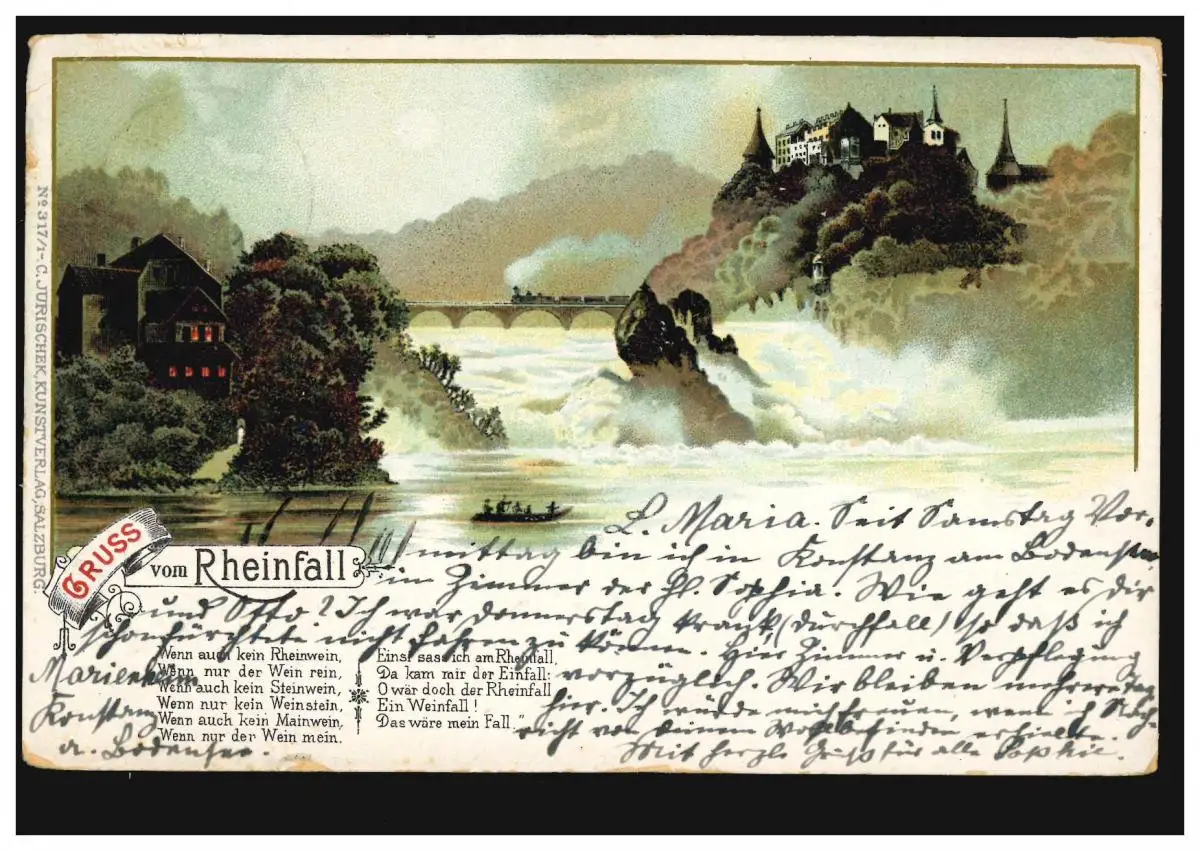 No 317/1- C. JURISCHEK, KUNSTVERLAG, SALZBURG.
GRUSS
vom Rheinfall
L. Maria. Seit Samstag Vor-
mittag bin ich in Konstanz am Bodensee
im Zimmer der hl. Sophia. Wie geht es dir
und Otto? Ich war Donnerstag krank, (Durchfall) so daß ich
schon fürchtete nicht fahren zu können. Hier Zimmer u. Verpflegung
vorzüglich. Wir bleiben mehrere Tage
hier. Ich würde mich freuen, wenn ich Nach-
richt von deinem Wohlbefinden erhielte.
Mit herzl. Gruß für alle Sophie.
Marienheim
Konstanz
a. Bodensee.
Wenn auch kein Rheinwein,
Wenn nur der Wein rein,
Wenn auch kein Steinwein,
Wenn nur kein Weinstein,
Wenn auch kein Mainwein,
Wenn nur der Wein mein.
Einst sass ich am Rheinfall,
Da kam mir der Einfall:
O wär doch der Rheinfall
Ein Weinfall!
Das wäre mein Fall."